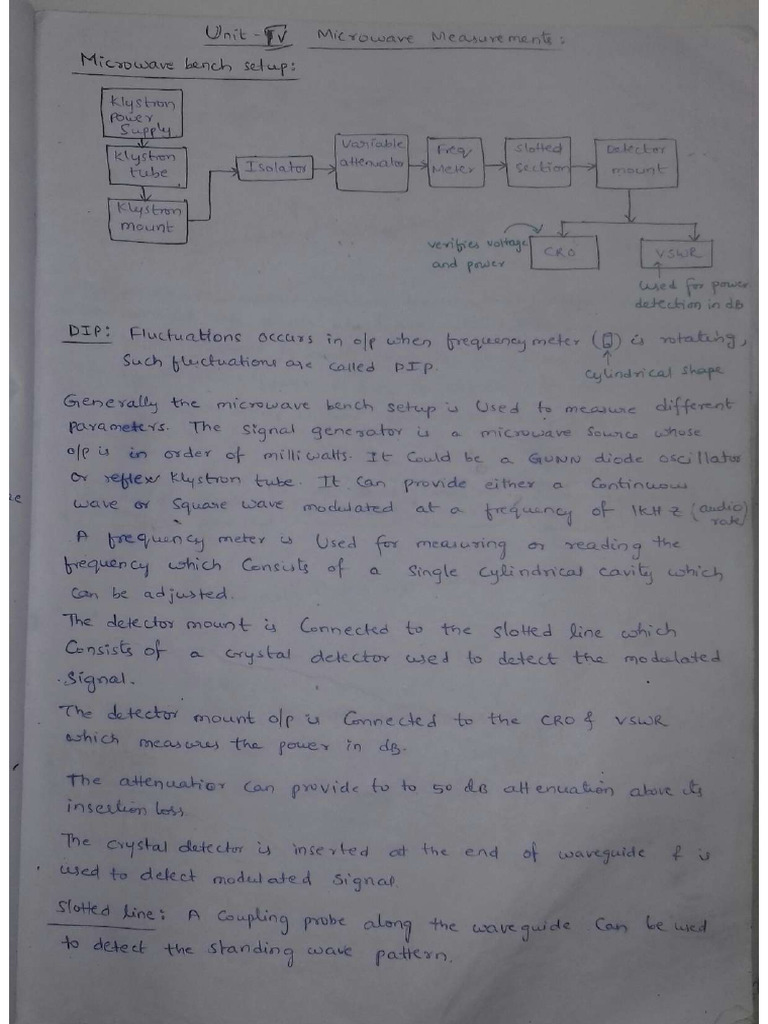 Unit - IV Microwave Measurements:
Microwave bench setup:
Klystron
power
Supply
Klystron
tube
Klystron
mount
Isolator
Variable
attenuator
Freq.
Meter
Slotted
section
Detector
mount
verifies voltage
and power
CRO
VSWR
used for power
detection in dB
DIP: Fluctuations occurs in o/p when frequency meter ( ) is rotating,
such fluctuations are called DIP.
cylindrical shape
Generally the microwave bench setup is used to measure different
parameters. The signal generator is a microwave source whose
o/p is in order of milliwatts. It could be a GUNN diode oscillator
or reflex klystron tube. It can provide either a continuous
wave or square wave modulated at a frequency of 1KHz (audio
rate)
A frequency meter is used for measuring or reading the
frequency which consists of a single cylindrical cavity which
can be adjusted.
The detector mount is connected to the slotted line which
consists of a crystal detector used to detect the modulated
signal.
The detector mount o/p is connected to the CRO & VSWR
which measures the power in dB.
The attenuatior can provide to to 50 dB attenuation above its
insertion loss
The crystal detector is inserted at the end of waveguide & is
used to detect modulated signal.
Slotted line: A coupling probe along the waveguide can be used
to detect the standing wave pattern.